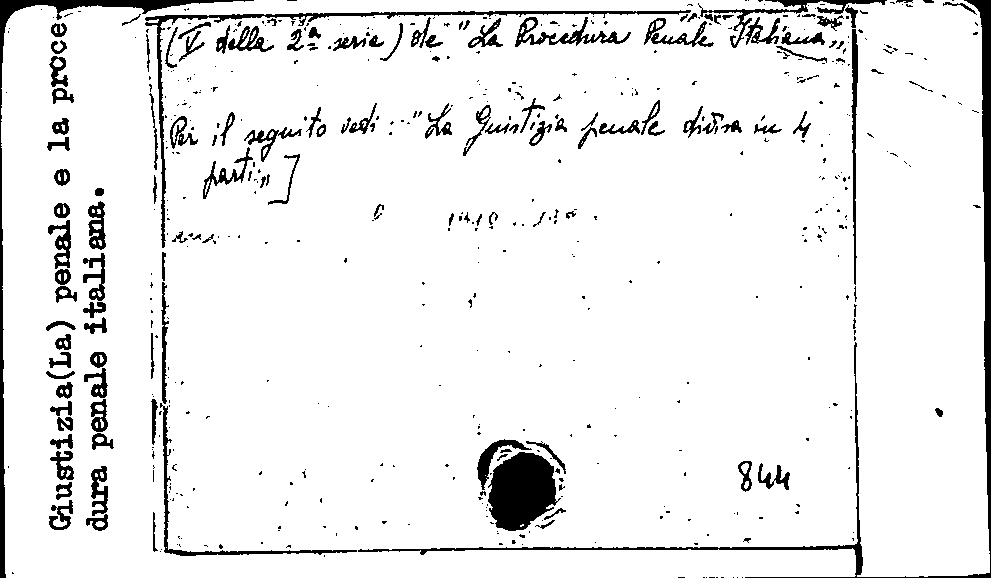 Giustizia(La) penale e la proce
dura penale italiana.
(V della 2ª serie) de "La Procedura Penale Italiana„
Per il seguito vedi: "La Giustizia penale divisa in 4
parti„]
844